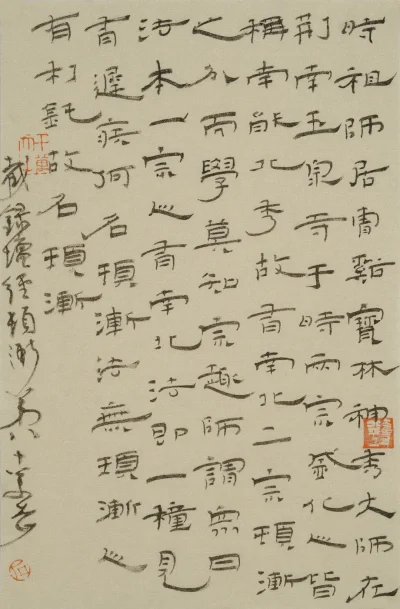 時祖師居曹谿寶林神秀大師在
荊南玉泉寺于時兩宗盛化人皆
稱南能北秀故有南北二宗頓漸
之分而學莫知宗趣師謂眾曰
法本一宗人有南北法即一種見
有遲疾何名頓漸法無頓漸人
有利鈍故名頓漸
截錄壇經頓漸第八